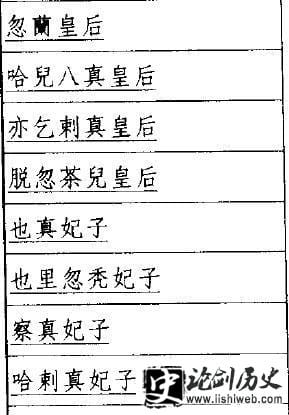 忽蘭皇后
哈兒八真皇后
亦乞剌真皇后
脱忽茶兒皇后
也真妃子
也里忽秃妃子
察真妃子
哈剌真妃子
史 论剑历史
www.lishiweb.com